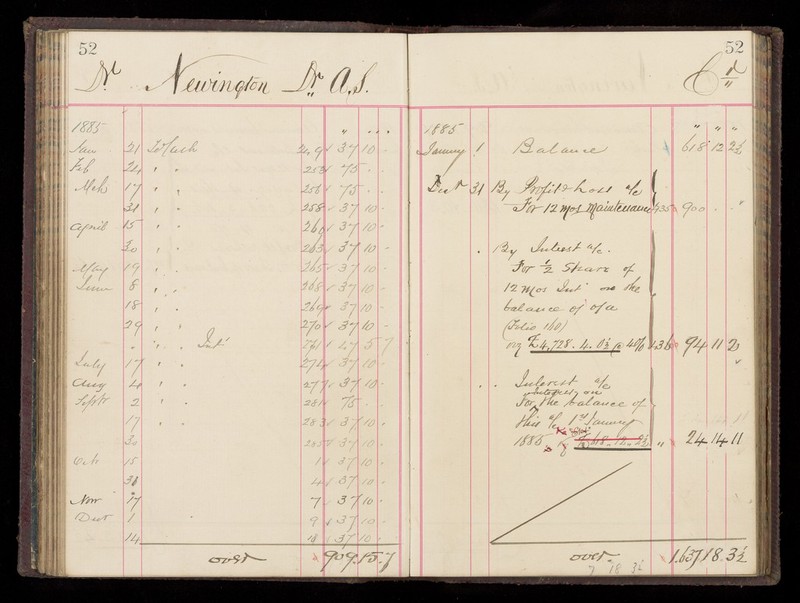 52
Dr Newington Dr A.S.
1885
Jan 21 To Cash 249 37 10 -
Feb 24 " " 253 75 - -
Mch 17 " " 256 75 - -
31 " " 258 37 10 -
April 15 " " 260 37 10 -
30 " " 263 37 10 -
May 19 " " 265 37 10 -
June 8 " " 268 37 10 -
18 " " 269 37 10 -
29 " " 270 37 10 -
" " Int
July 17 " " 274 37 10 -
Aug 4 " " 277 37 10 -
Septr 2 " " 281 75 -
17 " " 283 37 10 -
30 37 10 -
Oct 15 1 37 10 -
31 4 37 10 -
Nov 17 7 37 10 -
Dect 1 9 37 10 -
14 37 10 -
over 909.15.7
52
Cr
1885
January 1 Balance 618 12 2½
Dect 31 By Profit & Loss a/c
For 12 mos Maintenance 435 900 - "
By Interest a/c.
For ½ Share of
12 mos Int on the
balance of o/a
(Folio 160)
£4,728. 4. 0½ @ 4% 436 94 11 2
Interest a/c
Interest on
For the balance of
this a/c 1st January
1885 £618.12.2½ " 24 14 11
over 1.637 18. 3½